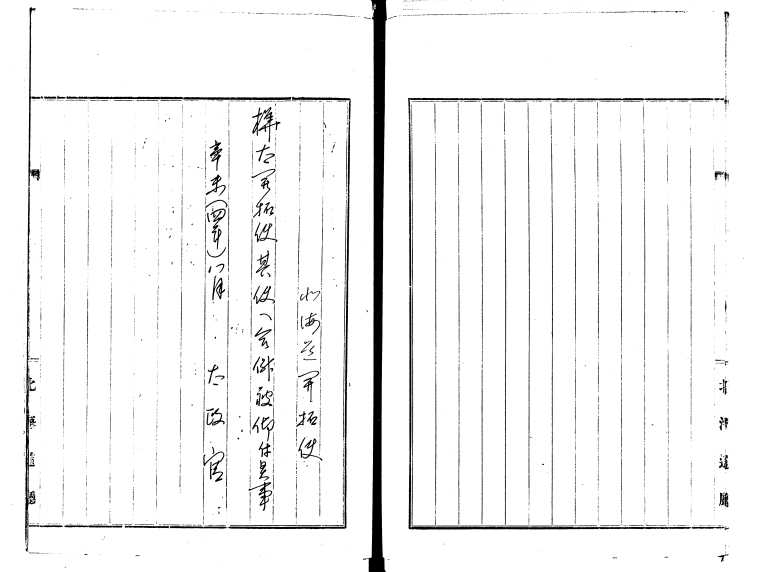 北海道開拓使
樺太開拓使其使ヘ合併被仰付候事
辛未(四年)八月 太政官
北海道廳